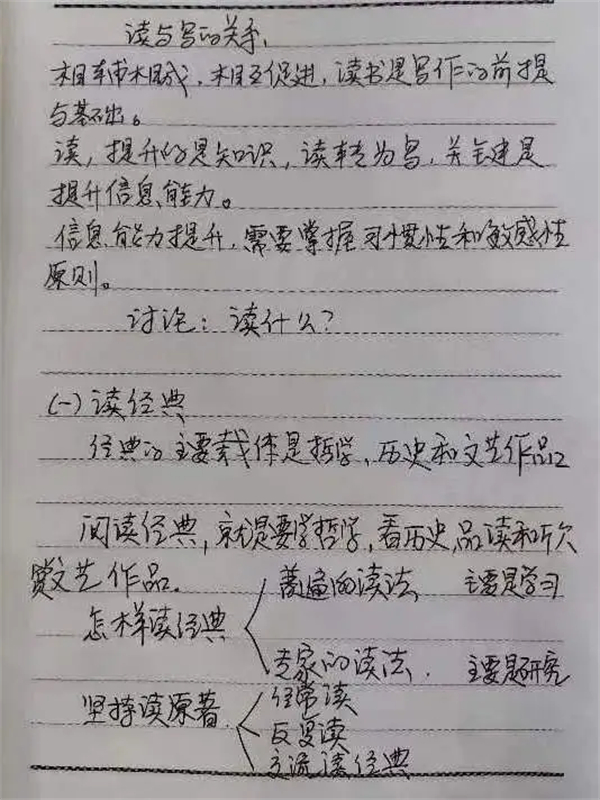 读与写的关系、
相辅相成，相互促进，读书是写作的前提
与基础。
读，提升的是知识，读转为写，关键是
提升信息能力。
信息能力提升，需要掌握习惯性和敏感性
原则。
讨论：读什么？
(一) 读经典
经典的主要载体是哲学、历史和文艺作品
阅读经典，就是要学哲学，看历史，品读和欣
赏文艺作品.
普遍的读法、 主要是学习
怎样读经典
专家的读法. 主要是研究
经常读
坚持读原著
反复读
交流读经典